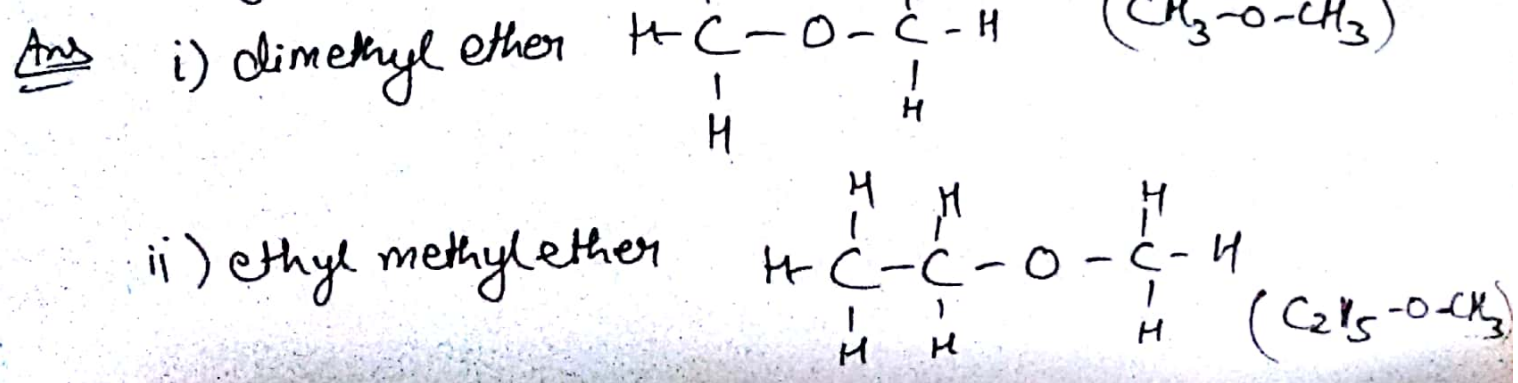 Ans i) dimethyl ether H-C-O-C-H (CH3-O-CH3)
H H
H H H
ii) ethyl methyl ether H-C-C-O-C-H
H H H (C2H5-O-CH3)